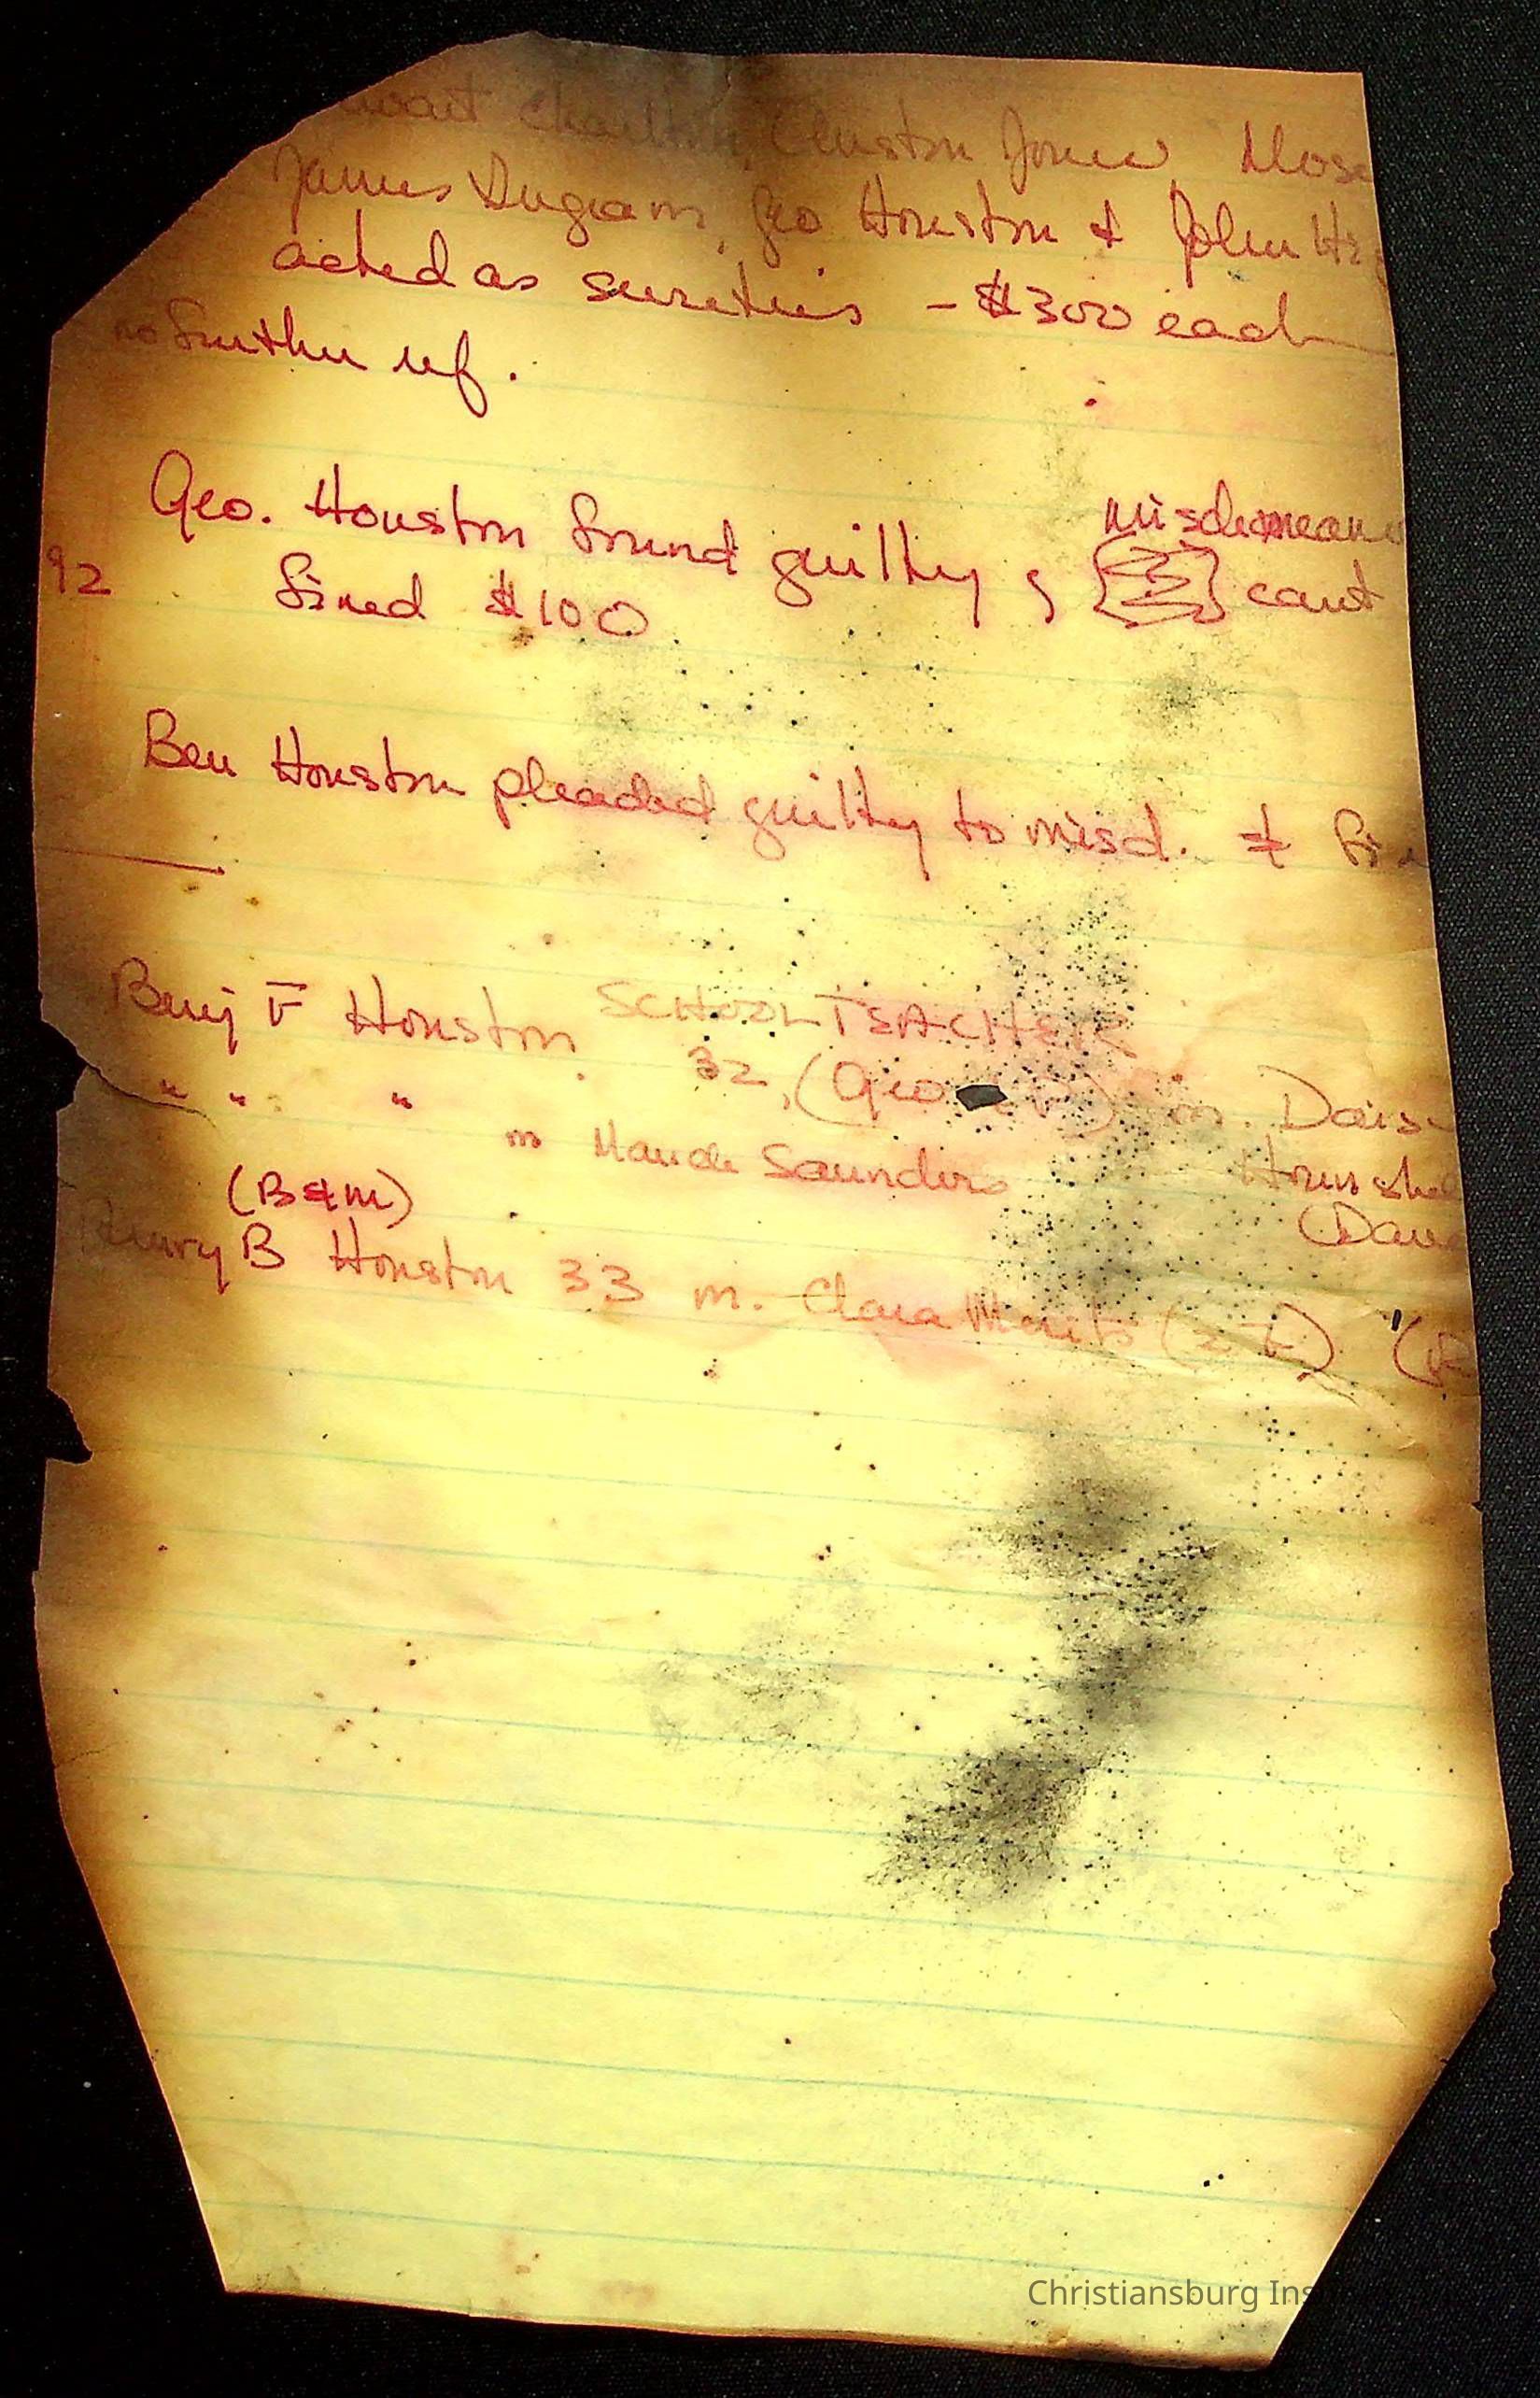 Charlton, Auston Jones, Mose
James Ingram, Geo Houston & John
acted as sureties - $300 each
no further ref.
misdemeanor
Geo. Houston found guilty of cant
92 fined $100
Ben Houston pleaded guilty to misd. &
Benj F Houston SCHOOL TEACHER
" " " 32, (Geo m. Dais
m Maude Saunders Hounshel
(B&M) (Dav
Henry B Houston 33 m. Clara
Christiansburg Ins